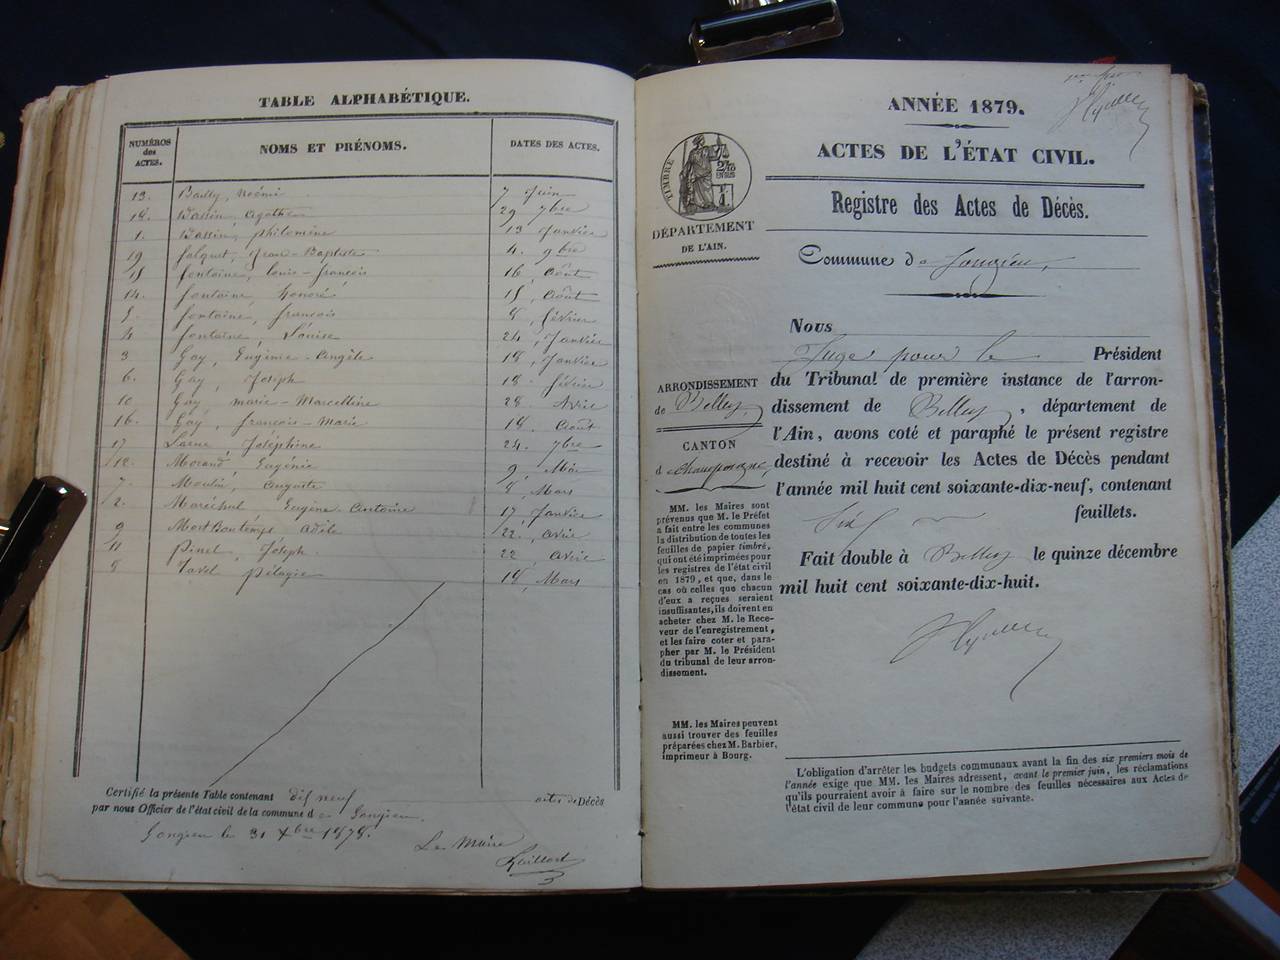 TABLE ALPHABÉTIQUE.
NUMÉROS des ACTES.
NOMS ET PRÉNOMS.
DATES DES ACTES.
13. Bailly, Noémi 7 Juin
18. Bassin, Agathe 29 7bre
1. Bassin, Philomène 13 Janvier
19 Falquet, Jean-Baptiste 4. 9bre
15 Fontaine, Louis-François 16 Août
14. Fontaine, Honoré 15, Août
5. Fontaine, François 8, Février
4 Fontaine, Louise 24, Janvier
3 Gay, Eugénie-Angèle 18, Janvier
6. Gay, Joseph 18. Février
10 Gay, Marie-Marcelline 28. Avril
16. Gay, François-Marie 18. Août
17 Joséphine 24. 7bre
12. Morand, Eugénie 9. Mai
7. Moulin, Auguste 8, Mars
2. Maréchal Eugène Antoine 17 Janvier
9 Montbontemps Adèle 22, Avril
11 Pinel, Joseph. 22, Avril
8 Tavel Pélagie 18, Mars
Certifié la présente Table contenant dix neuf actes de Décès
par nous Officier de l'état civil de la commune de Songieu
Songieu le 31 Xbre 1878.
Le Maire
ANNÉE 1879.
ACTES DE L'ÉTAT CIVIL.
Registre des Actes de Décès.
TIMBRE
DÉPARTEMENT
DE L'AIN.
Commune de Songieu,
Nous
Juge pour le Président
du Tribunal de première instance de l'arron-
dissement de Belley, département de
l'Ain, avons coté et paraphé le présent registre
destiné à recevoir les Actes de Décès pendant
l'année mil huit cent soixante-dix-neuf, contenant
Six feuillets.
Fait double à Belley le quinze décembre
mil huit cent soixante-dix-huit.
ARRONDISSEMENT
de Belley,
CANTON
d Champagne,
MM. les Maires sont
prévenus que M. le Préfet
a fait entre les communes
la distribution de toutes les
feuilles de papier timbré,
qui ont été imprimées pour
les registres de l'état civil
en 1879, et que, dans le
cas où celles que chacun
d'eux a reçues seraient
insuffisantes, ils doivent en
acheter chez M. le Rece-
veur de l'enregistrement,
et les faire coter et para-
pher par M. le Président
du tribunal de leur arron-
dissement.
MM. les Maires peuvent
aussi trouver des feuilles
préparées chez M. Barbier,
imprimeur à Bourg.
L'obligation d'arrêter les budgets communaux avant la fin des six premiers mois de
l'année exige que MM. les Maires adressent, avant le premier juin, les réclamations
qu'ils pourraient avoir à faire sur le nombre des feuilles nécessaires aux Actes de
l'état civil de leur commune pour l'année suivante.